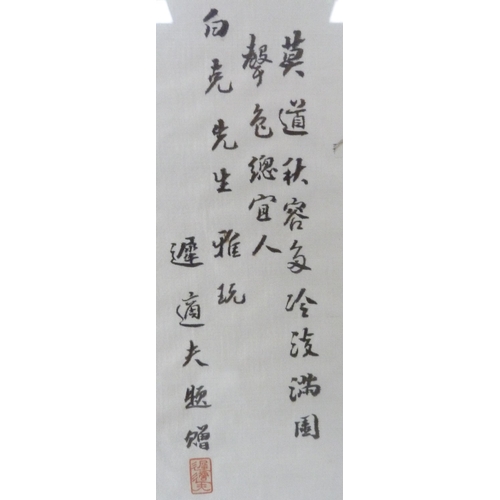 莫道秋容多冷淡滿園
聲色總宜人
白克先生雅玩
遲適夫題贈